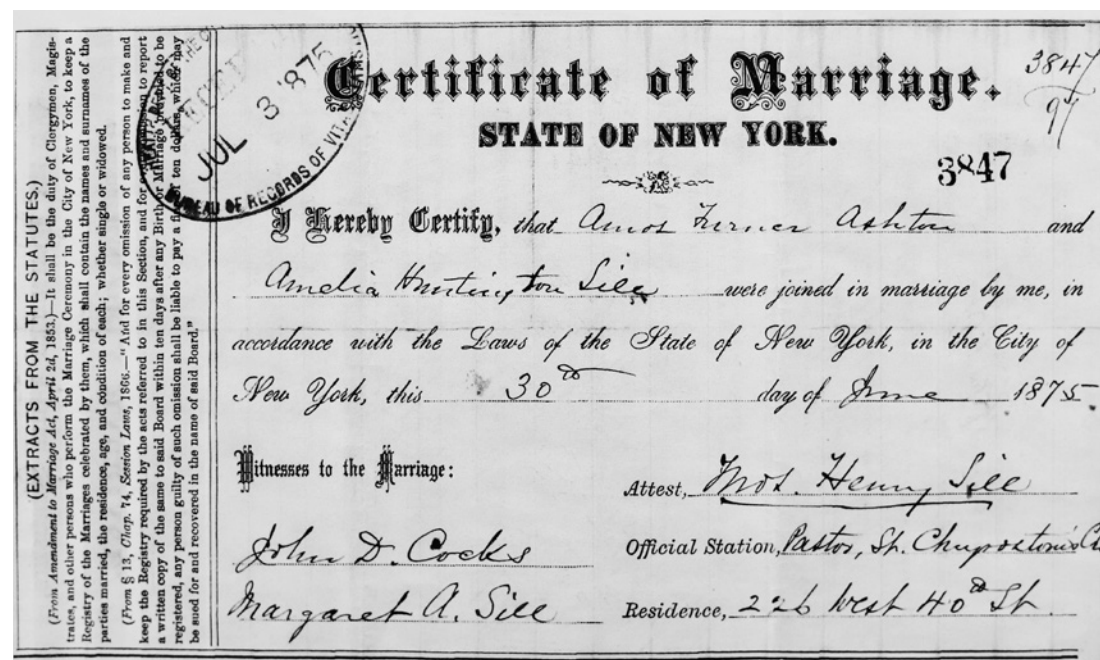 (EXTRACTS FROM THE STATUTES.)
(From Amendment to Marriage Act, April 2d, 1853.)—It shall be the duty of Clergymen, Magis-
trates, and other persons who perform the Marriage Ceremony in the City of New York, to keep a
Registry of the Marriages celebrated by them, which shall contain the names and surnames of the
parties married, the residence, age, and condition of each; whether single or widowed.
(From § 13, Chap. 74, Session Laws, 1866.—"And for every omission of any person to make and
keep the Registry required by the acts referred to in this Section, and for omission to report
a written copy of the same to said Board within ten days after any Birth or Marriage provided to be
registered, any person guilty of such omission shall be liable to pay a fine of ten dollars, which may
be sued for and recovered in the name of said Board."
JUL 3 1875
BUREAU OF RECORDS OF
Certificate of Marriage.
3847
STATE OF NEW YORK.
3847
I Hereby Certify, that Amos Turner Ashton and
Amelia Huntington Sill were joined in marriage by me, in
accordance with the Laws of the State of New York, in the City of
New York, this 30th day of June 1875
Witnesses to the Marriage:
Attest, Thos. Henry Sill
John D. Cocks
Official Station, Pastor, St. Chrysostom's
Margaret A. Sill
Residence, 226 West 40th St